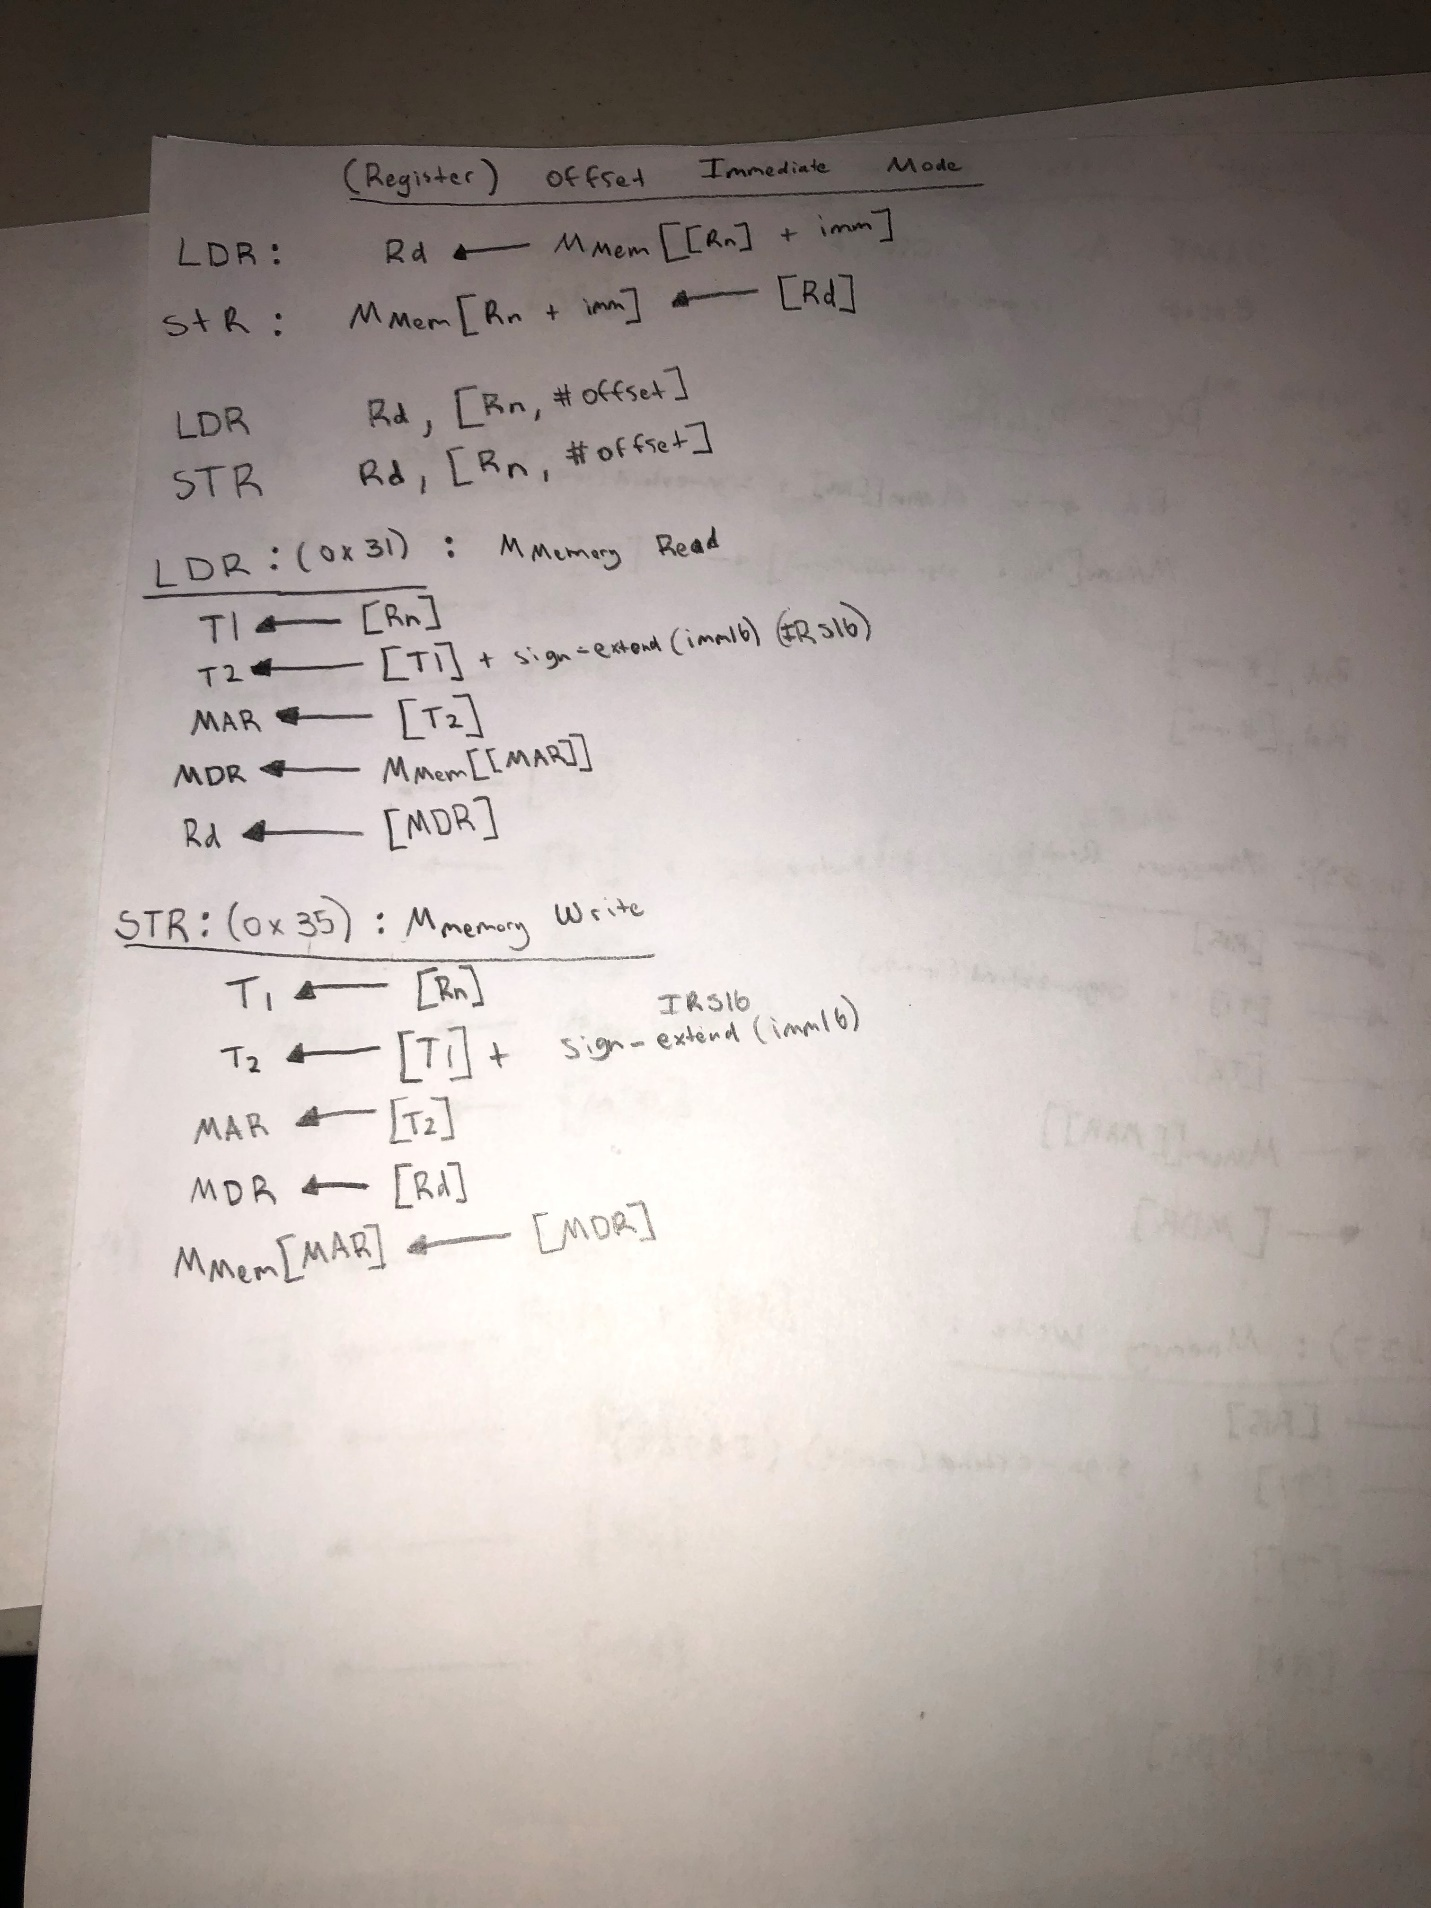 (Register) Offset Immediate Mode
LDR: Rd ← MMem[[Rn] + imm]
StR: MMem[Rn + imm] ← [Rd]
LDR Rd, [Rn, #offset]
STR Rd, [Rn, #offset]
LDR:(0x31) : MMemory Read
T1 ← [Rn]
T2 ← [T1] + sign-extend(imm16) (IRS16)
MAR ← [T2]
MDR ← MMem[[MAR]]
Rd ← [MDR]
STR:(0x35) : Mmemory Write
T1 ← [Rn]
IRS16
T2 ← [T1] + sign-extend(imm16)
MAR ← [T2]
MDR ← [Rd]
MMem[MAR] ← [MDR]